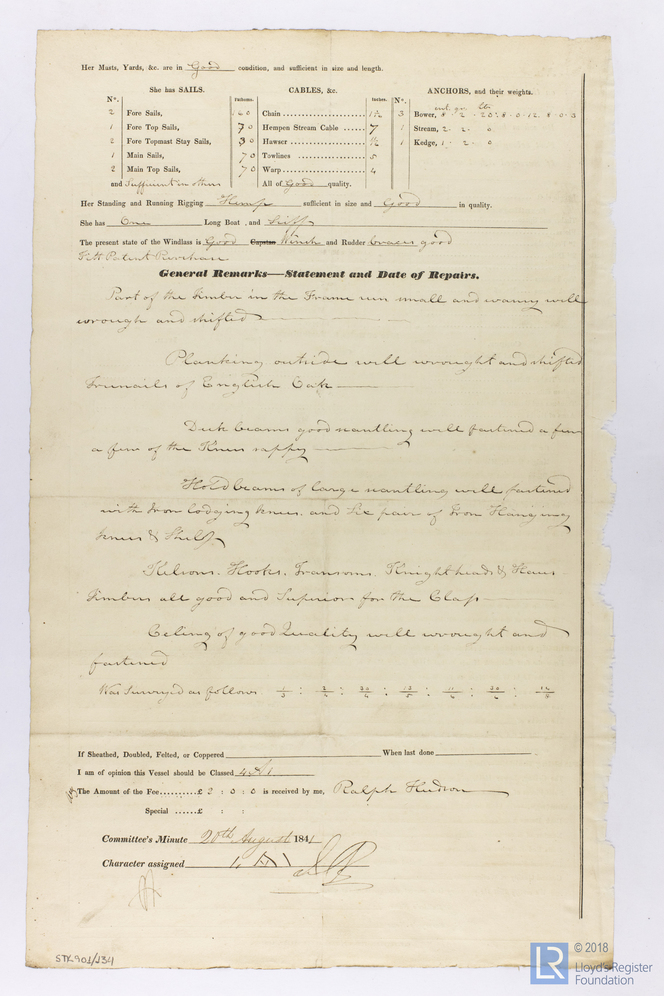 Her Masts, Yards, &c. are in Good condition, and sufficient in size and length.
She has SAILS.
CABLES, &c.
ANCHORS, and their weights.
N°. Fathoms. Inches. N°.
2 Fore Sails,
1 Fore Top Sails,
2 Fore Topmast Stay Sails,
1 Main Sails,
2 Main Top Sails,
and Sufficient in others
Chain 160
Hempen Stream Cable 70 7
Hawser 30
Towlines 70 5
Warp 70 4
All of Good quality.
3 Bower,
1 Stream, 2 . 2 . 0
1 Kedge, 1 . 2 . 0
Her Standing and Running Rigging Hemp sufficient in size and Good in quality.
She has One Long Boat and Skiff
The present state of the Windlass is Good Capstan Winch and Rudder braces good
Patent
General Remarks—Statement and Date of Repairs.
Part of the timber in the Frame small and waney well
wrough and shifted
Planking outside well wrought and shifted
Trunails of English Oak
Deck beams good scantling well fastened a few
a few of the Knees sappy
Hold beams of large scantling well fastened
with Iron lodging knees. and Six pair of Iron Hanging
knees & Shelf
Kelsons. Hooks. Transoms. Knightheads & Hawse
timbers all good and Superior for the Class
Celing of good Quality well wrought and
fastened
Was Surveyed as follows.
If Sheathed, Doubled, Felted, or Coppered When last done
I am of opinion this Vessel should be Classed 4 A 1
The Amount of the Fee......£ 2 : 0 : 0 is received by me, Ralph Hudson
Special ......£ : :
Committee's Minute 20th August 1841
Character assigned 4 A 1
STK-901/134
LR
© 2018
Lloyd's Register
Foundation